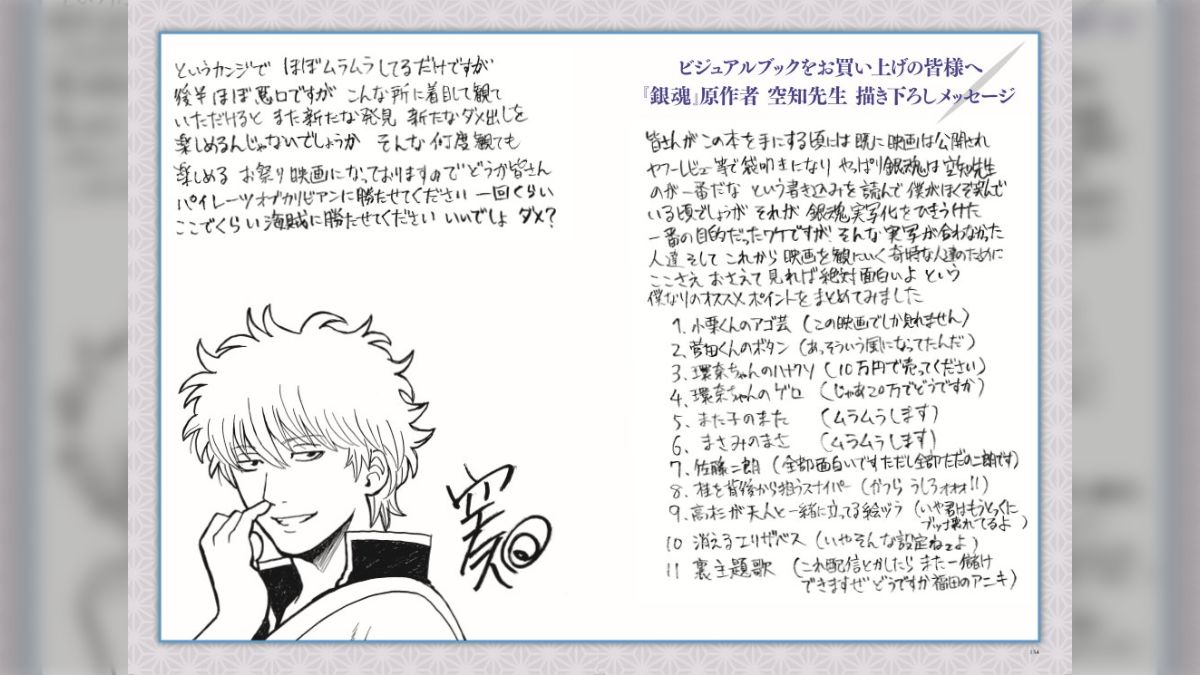 ビジュアルブックをお買い上げの皆様へ
『銀魂』原作者 空知先生 描き下ろしメッセージ
皆さんがこの本を手にする頃には 既に映画は公開され
ヤフーレビュー等で袋叩きになり やっぱり銀魂は空知先生
のが一番だな という書き込みを読んで 僕がほくそ笑んで
いる頃でしょうが それが 銀魂実写化をひきうけた
一番の目的だったワケですが そんな実写が合わなかった
人達 そして これから 映画を観にいく奇特な人達のために
ここさえ おさえて見れば絶対面白いよ という
僕なりのオススメポイントを まとめてみました
1、小栗くんのアゴ芸 (この映画でしか見れません)
2、菅田くんのボタン (あっそういう風になってたんだ)
3、環奈ちゃんのハナクソ (10万円で売ってください)
4、環奈ちゃんのゲロ (じゃあ20万でどうですか)
5、また子のまた (ムラムラします)
6、まさみのまさ (ムラムラします)
7、佐藤二朗 (全部面白いです ただし全部ただの二朗です)
8、桂を背後から狙うスナイパー (かつら うしろォォォ!!)
9、高杉が天人と一緒に立ってる絵ヅラ (いや君はもうとっくに
ブッ壊れてるよ)
10 消えるエリザベス (いやそんな設定ねェよ)
11 裏主題歌 (これ配信とかしたら また一儲け
できますぜ どうですか福田のアニキ)
というカンジで ほぼムラムラしてるだけですが
後半ほぼ悪口ですが こんな所に着目して観て
いただけると また新たな発見 新たなダメ出しを
楽しめるんじゃないでしょうか そんな 何度観ても
楽しめる お祭り映画になっておりますので どうか皆さん
パイレーツオブカリビアンに勝たせてください 一回くらい
ここでくらい 海賊に勝たせてください いいでしょ ダメ?
134